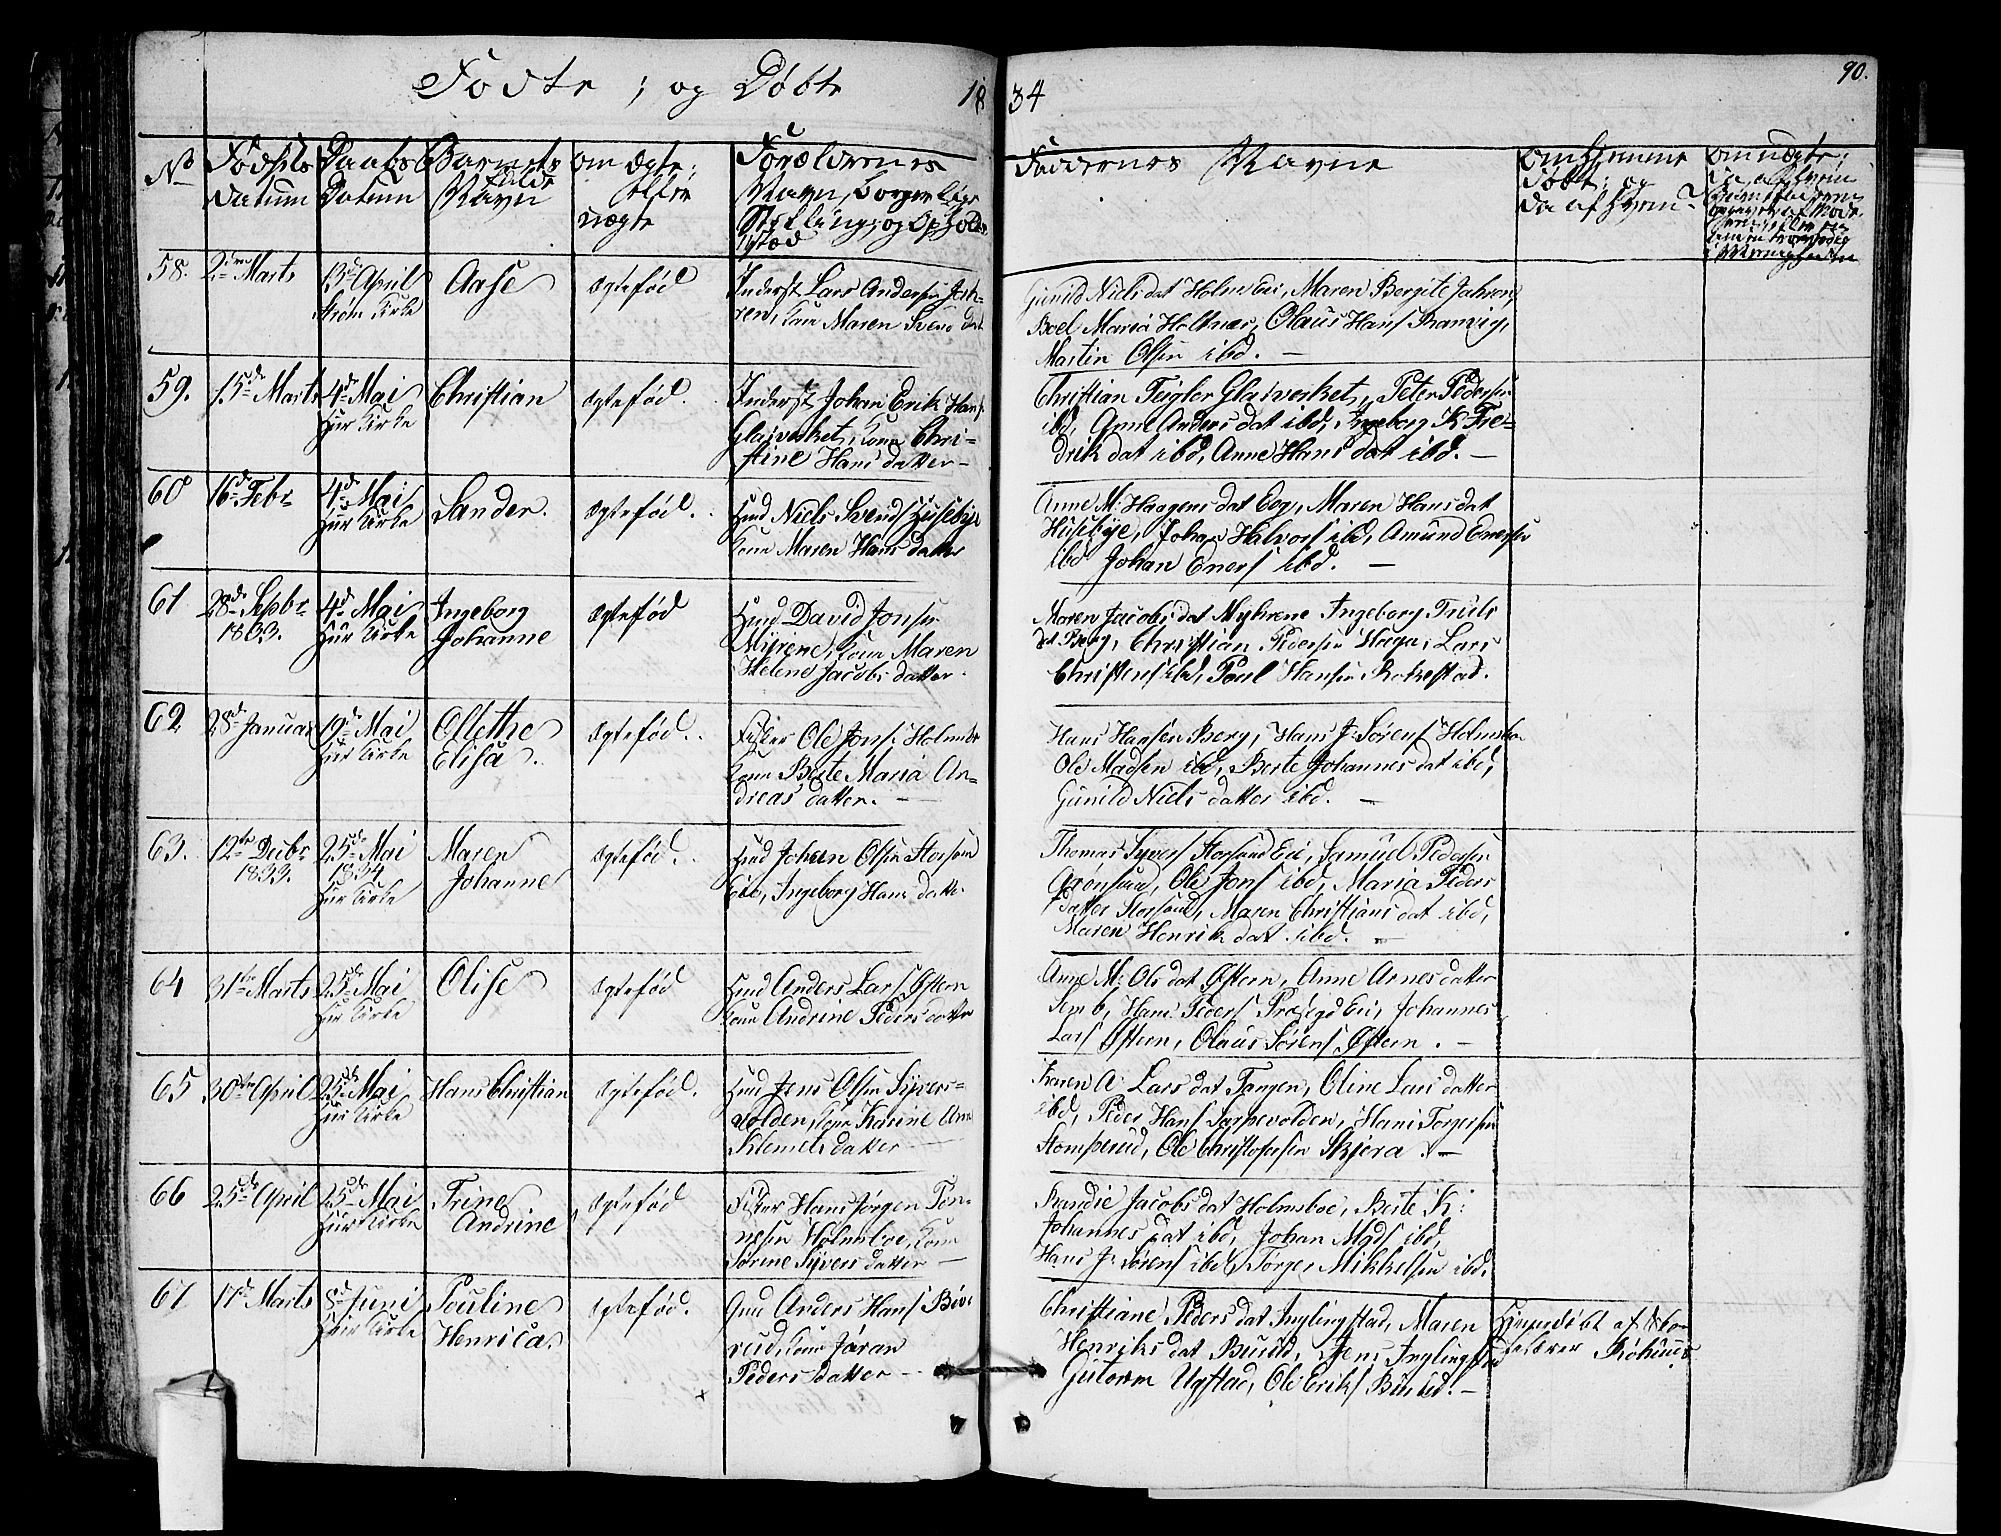 Födte, og Döbte 18 34
90.
No
Födsels Datum
Daabs Datum
Barnets fulde Navn
om ægte, eller uægte
Forældrenes Navn, borgerlige Stilling, og Opholds sted
Faddernes Navne
om hjemme döbt, og da af hvem
om uægte,
58. 2den Marts
13de April
Ström Kirke
Aase
ægtefød
Inderst Lars Andersen Jah=
ren, Kone Maren Svends dat
Gunild Niels dat Holm Eie, Maren Bergite Jahren,
Boel Maria Holtnæs, Olaus Hans Ramvig,
Martin Olsen ibd. —
59. 15de Marts
4de Mai
Hur Kirke
Christian
ægtefød.
Inderst Johan Erik Hans
Glasverket, Kone Chri=
stine Hans datter —
Christian Teigler Glasverket, Peter Pedersen
ibd, Anne Anders dat ibd, Ingeborg K Fre=
drik dat ibd, Anne Hans dat ibd. —
60 16de Febr
4de Mai
Hur Kirke
Sander.
ægtefød.
Hmd Niels Svends Husebye
Kone Maren Hans datter
Anne M: Haagens dat Eeg, Maren Hans dat
Husebye, Johan Halvors ibd, Amund Enersen
ibd Johan Eners ibd. —
61 28de Septbr
1833.
4de Mai
Hur Kirke
Ingeborg
Johanne
ægtefød
Hmd David Jonsen
Myrene, Kone Maren
Helene Jacobs datter.
Maren Jacobs dat Myhrene Ingeborg Truls
dat Berg, Christian Pedersen Haga, Lars
Christens ibd, Poul Hansen Rokestad.
62 28de Januar
19de Mai
Hur Kirke
Ollethe
Elisa.
ægtefød.
Fisker Ole Jons Holmsbo
Kone Berte Maria An=
dreas datter. —
Hans Hansen Berg, Hans J: Sörens Holmsbo
Ole Madsen ibd, Berte Johannes dat ibd,
Gunild Niels datter ibd. —
63. 12te Decbr
1833.
25de Mai
1834
Hur Kirke
Maren
Johanne
ægtefød.
Hmd Johan Olsen Storsand
Eie, Ingeborg Hans datter
Thomas Syvers Storsand Eie, Samuel Pedersen
Grönsand, Ole Jons ibd, Maria Peders
datter Storsand, Maren Christians dat ibd,
Maren Henrik dat ibd. —
64 31te Marts
25de Mai
Hur Kirke
Olise
ægtefød
Hmd Anders Lars Östern
Kone Andrine Peders datter
Anne M: Ols dat Östern, Anne Arnes datter
Semb, Hans Peders Præsegd Eie, Johannes
Lars Östern, Olaus Sörens Östern. —
65 30te April
25de Mai
Hur Kirke
Hans Christian
ægtefød.
Hmd Jens Olsen Syver=
volden, Kone Karine Ann
Klemets datter —
Karen A: Lars dat Tangen, Oline Lars datter
ibd, Peder Hans Sarpevolden, Hans Torgersen
Stomperud, Ole Christofersen Skjera. —
66 25de April
25de Mai
Hur Kirke
Trine
Andrine
ægtefød
Fisker Hans Jörgen Tön=
nesen Holmsboe, Kone
Sörine Syvers datter —
Randie Jacobs dat Holmsboe, Berte K:
Johannes dat ibd, Johan Mgds ibd,
Hans J: Sörens ibd, Torger Mikkelsen ibd.
67 17de Marts
8de Juni
Hur Kirke
Pouline
Henrica
ægtefød.
Gmd Anders Hans Bive
rud, Kone Jöran
Peders datter —
Christiane Peders dat Inglingstad, Maren
Henriks dat Burud, Jens Inglingstad
Gutorm Ugstad, Ole Eriks Burud. —
Hjemedöbt af skole
lærer